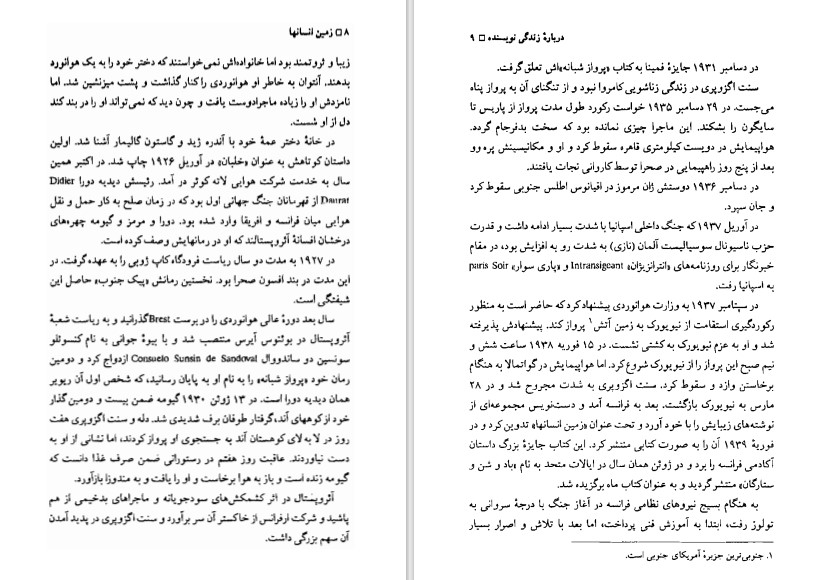 ۸ □ زمین انسانها
زیبا و ثروتمند بود اما خانواده‌اش نمی‌خواستند که دختر خود را به یک هوانورد
بدهند. آنتوان به خاطر او هوانوردی را کنار گذاشت و پشت میزنشین شد. اما
نامزدش او را زیاده ماجرادوست یافت و چون دید که نمی‌تواند او را در بند کند
دل از او شست.
در خانهٔ دختر عمهٔ خود با آندره ژید و گاستون گالیمار آشنا شد. اولین
داستان کوتاهش به عنوان «خلبان» در آوریل ۱۹۲۶ چاپ شد. در اکتبر همین
سال به خدمت شرکت هوایی لاته کوئر در آمد. رئیسش دیدیه دورا Didier
Daurat از قهرمانان جنگ جهانی اول بود که در زمان صلح به کار حمل و نقل
هوایی میان فرانسه و افریقا وارد شده بود. دورا و مرمز و گیومه چهره‌های
درخشان افسانهٔ آئروپستالند که او در رمانهایش وصف کرده است.
در ۱۹۲۷ به مدت دو سال ریاست فرودگاه کاپ ژوبی را به عهده گرفت. در
این مدت در بند افسون صحرا بود. نخستین رمانش «پیک جنوب» حاصل این
شیفتگی است.
سال بعد دورهٔ عالی هوانوردی را در برست Brest گذرانید و به ریاست شعبهٔ
آئروپستال در بوئنوس آیرس منتصب شد و با بیوهٔ جوانی به نام کنسوئلو
سونسین دو ساندووال Consuelo Sunsin de Sandoval ازدواج کرد و دومین
رمان خود «پرواز شبانه» را به نام او به پایان رسانید، که شخص اول آن ریویر
همان دیدیه دورا است. در ۱۳ ژوئن ۱۹۳۰ گیومه ضمن بیست و دومین گذار
خود از کوههای آند، گرفتار طوفان برف شدیدی شد. دله و سنت اگزوپری هفت
روز در لا به لای کوهستان آند به جستجوی او پرواز کردند، اما نشانی از او به
دست نیاوردند. عاقبت روز هفتم در رستورانی ضمن صرف غذا دانست که
گیومه زنده است و باز به هوا برخاست و او را یافت و به مندوزا بازآورد.
آئروپستال در اثر کشمکش‌های سودجویانه و ماجراهای بدخیمی از هم
پاشید و شرکت ارفرانس از خاکستر آن سر برآورد و سنت اگزوپری در پدید آمدن
آن سهم بزرگی داشت.
دربارهٔ زندگی نویسنده □ ۹
در دسامبر ۱۹۳۱ جایزهٔ فمینا به کتاب «پرواز شبانه»اش تعلق گرفت.
سنت اگزوپری در زندگی زناشویی کامروا نبود و از تنگنای آن به پرواز پناه
می‌جست. در ۲۹ دسامبر ۱۹۳۵ خواست رکورد طول مدت پرواز از پاریس تا
سایگون را بشکند. این ماجرا چیزی نمانده بود که سخت بدفرجام گردد.
هواپیمایش در دویست کیلومتری قاهره سقوط کرد و او و مکانیسینش پره وو
بعد از پنج روز راهپیمایی در صحرا توسط کاروانی نجات یافتند.
در دسامبر ۱۹۳۶ دوستش ژان مرموز در اقیانوس اطلس جنوبی سقوط کرد
و جان سپرد.
در آوریل ۱۹۳۷ که جنگ داخلی اسپانیا با شدت بسیار ادامه داشت و قدرت
حزب ناسیونال سوسیالیست آلمان (نازی) به شدت رو به افزایش بود، در مقام
خبرنگار برای روزنامه‌های «انترانزیژان» Intransigeant و «پاری سوار» paris Soir
به اسپانیا رفت.
در سپتامبر ۱۹۳۷ به وزارت هوانوردی پیشنهاد کرد که حاضر است به منظور
رکوردگیری استقامت از نیویورک به زمین آتش۱ پرواز کند. پیشنهادش پذیرفته
شد و او به عزم نیویورک به کشتی نشست. در ۱۵ فوریهٔ ۱۹۳۸ ساعت شش و
نیم صبح این پرواز را از نیویورک شروع کرد. اما هواپیمایش در گواتمالا به هنگام
برخاستن وازد و سقوط کرد. سنت اگزوپری به شدت مجروح شد و در ۲۸
مارس به نیویورک بازگشت. بعد به فرانسه آمد و دست‌نویس مجموعه‌ای از
نوشته‌های زیبایش را با خود آورد و تحت عنوان «زمین انسانها» تدوین کرد و در
فوریهٔ ۱۹۳۹ آن را به صورت کتابی منتشر کرد. این کتاب جایزهٔ بزرگ داستان
آکادمی فرانسه را برد و در ژوئن همان سال در ایالات متحد به نام «باد و شن و
ستارگان» منتشر گردید و به عنوان کتاب ماه برگزیده شد.
به هنگام بسیج نیروهای نظامی فرانسه در آغاز جنگ با درجهٔ سروانی به
تولوز رفت، ابتدا به آموزش فنی پرداخت، اما بعد با تلاش و اصرار بسیار
۱. جنوبی‌ترین جزیرهٔ آمریکای جنوبی است.